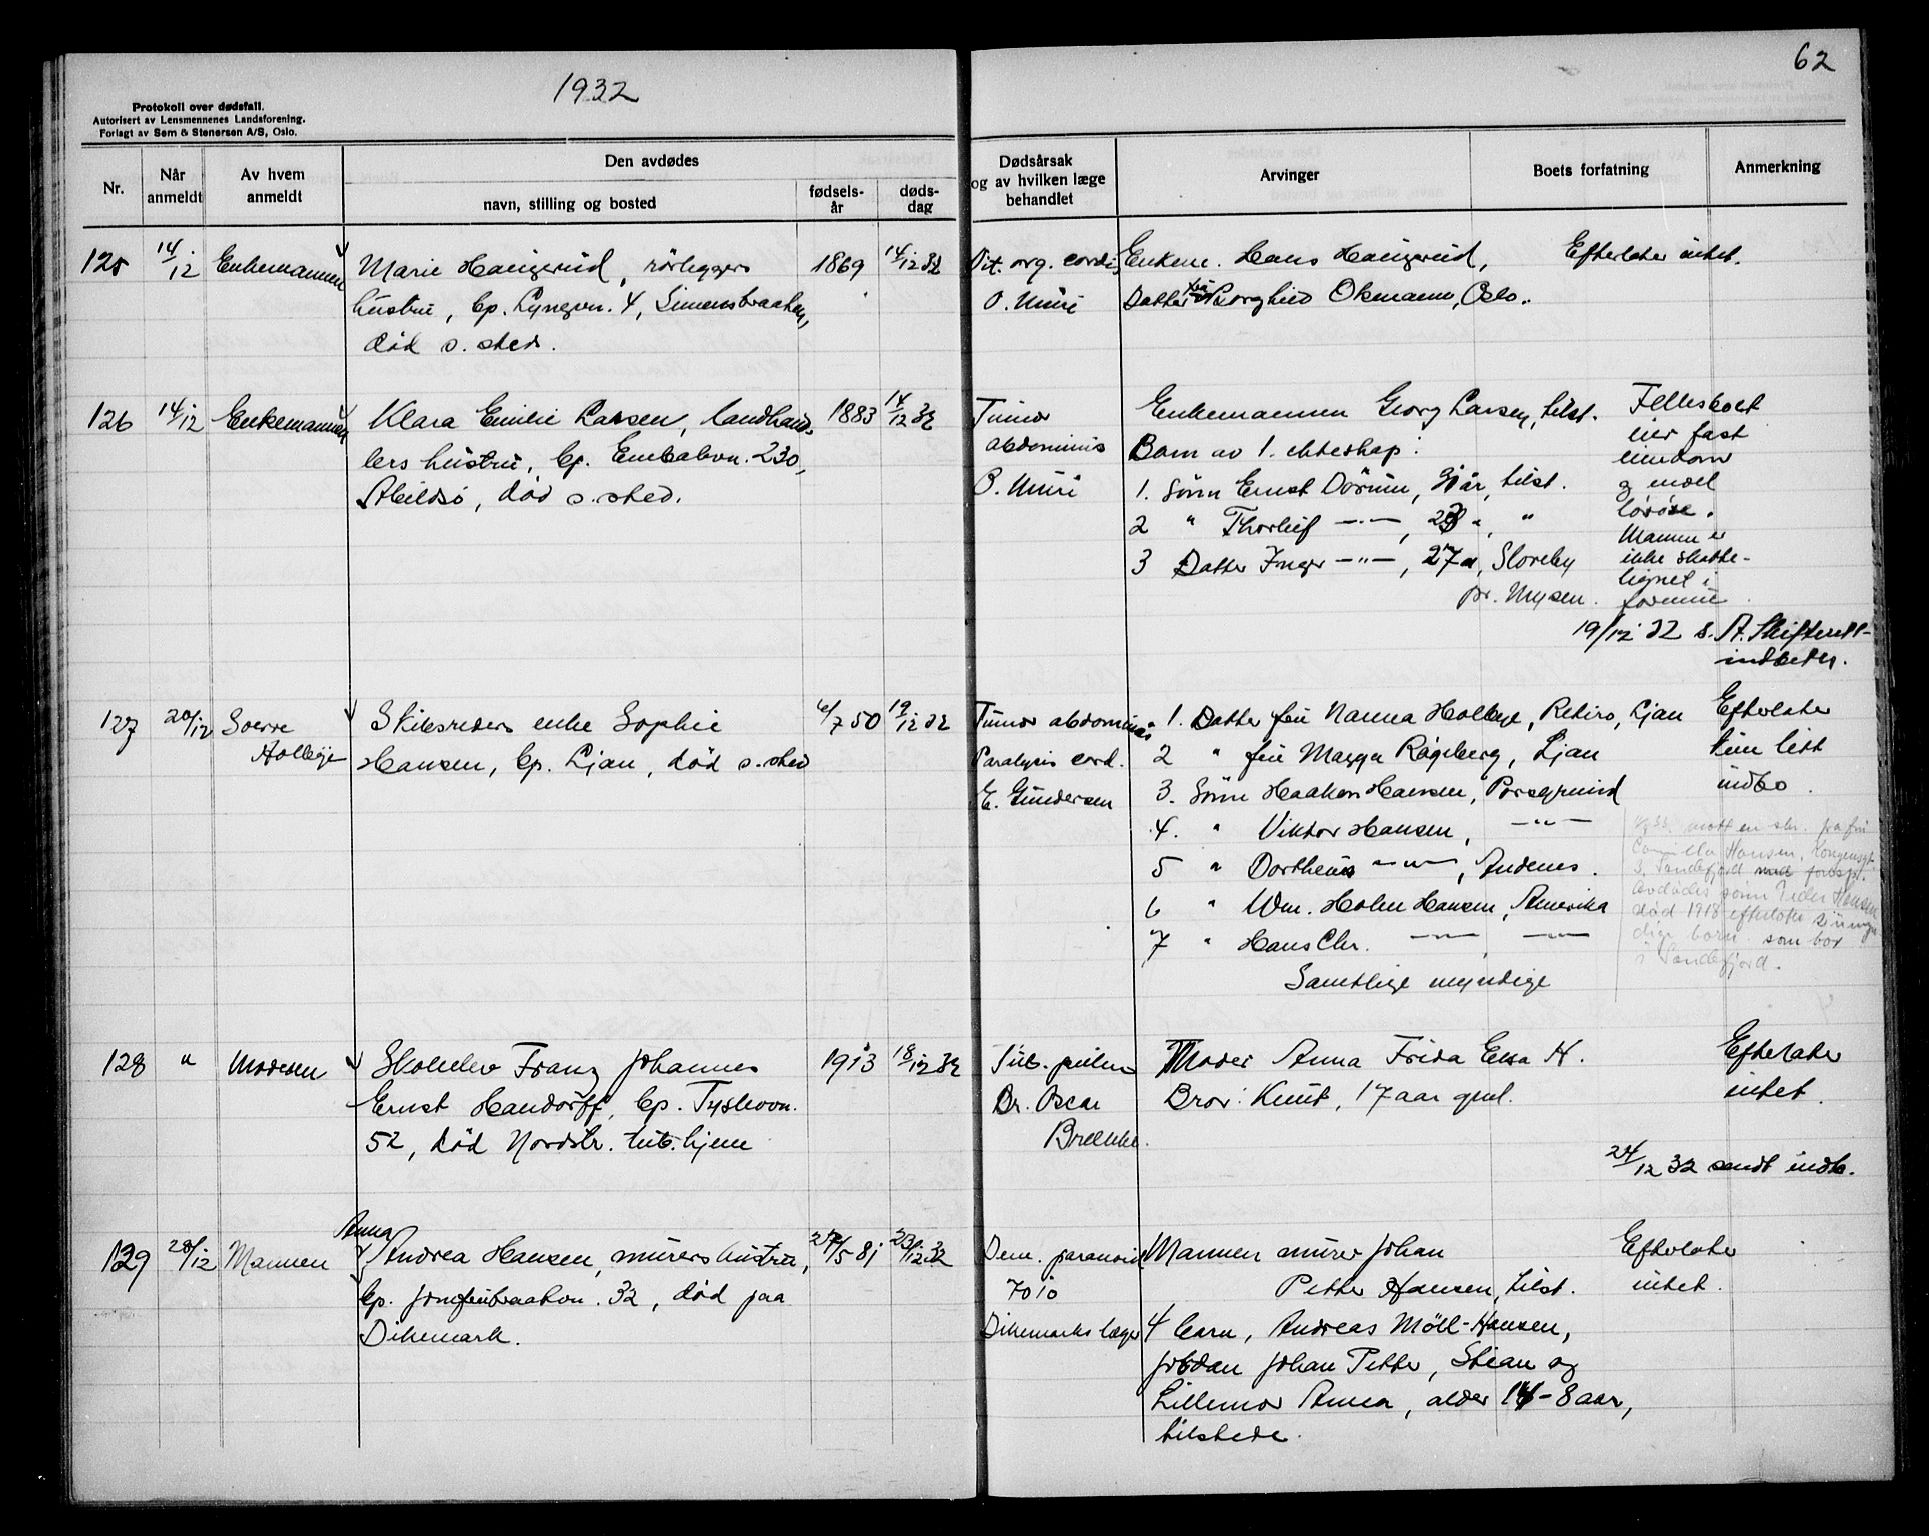 1932
62
Protokoll over dødsfall.
Autorisert av Lensmennenes Landsforening.
Forlagt av Sem & Stenersen A/S, Oslo.
Nr.
Når anmeldt
Av hvem anmeldt
Den avdødes
navn, stilling og bosted
fødsels-år
døds-dag
Dødsårsak og av hvilken læge behandlet
Arvinger
Boets forfatning
Anmerkning
125 14/12 Enkemannen Marie Haugerud, rørleggers 1869 14/12 32
hustru, bp. Lyngvn. 4, Simensbraaten,
død s. sted.
Vit. org. cordis
O. Muri
Enkem. Hans Haugerud,
Datter fru Borghild Oksmann, Oslo.
Efterlater intet.
126 14/12 Enkemannen Klara Emilie Larsen, landhand- 1883 14/12 32
lers hustru, bp. Enebakvn. 230,
Abildsø, død s. sted.
Tumor
abdominis
O. Muri
Enkemannen Georg Larsen, tilst.
Barn av 1. ekteskap:
1. Sønn Ernst Dørum, år, tilst.
2 " Thorleif —"—, "
3 Datter Inger —"—, 27 ", Sloreby
pr. Mysen.
Fellesboet
eier fast
eiendom
og endel
løsøre.
Mannen er
ikke skatte-
lignet i
formue
19/12 32 s. A. Skifterett-
indbetn.
127 20/12 Sverre
Hollbye
Skibsreders enke Sophie 6/7 50 19/12 32
Hansen, bp. Ljan, død s. sted
Tumor abdominis
Paralysis cord.
E. Gundersen
1. Datter fru Nanna Holbye, Retiro, Ljan
2 " fru Magga Rågeberg, Ljan
3. Sønn Haakon Hansen, Porsgrund
4. " Viktor Hansen, —"—
5 " Dortheus —"—, Andenes.
6 " Wm. Holm Hansen, Amerika
7 " Hans Chr. —"— —"—
Samtlige myndige
Efterlater
kun litt
indbo.
mott en skr. fra fru
Camilla Hansen, Kongensgt.
3, Sandefjord med foresp.
Avdødes sønn Peder Hansen
død 1918 efterlot
barn som bor
i Sandefjord.
128 " Moderen Skoleelev Franz Johannes 1913 18/12 32
Ernst Handorff, bp. Tyslevvn.
52, død Nordstr. tub.hjem
Tub. pulm
Dr. Oscar
Brække.
Moder Anna Frida Elsa H.
Bror: Knut, 17 aar gml.
Efterlater
intet.
24/12 32 sendt indb.
129 28/12 Mannen Anna
Andrea Hansen, murers hustru, 27/5 81 23/12 32
bp. Jomfrubraatvn. 32, død paa
Dikemark.
Dem. paranoid.
Dikemarks læger
Mannen murer Johan
Petter Hansen, tilst.
4 barn, Andreas Møll-Hansen,
Jordan Johan Petter, Stean og
Lillemor Anna, alder 14-8 aar,
tilstede.
Efterlater
intet.